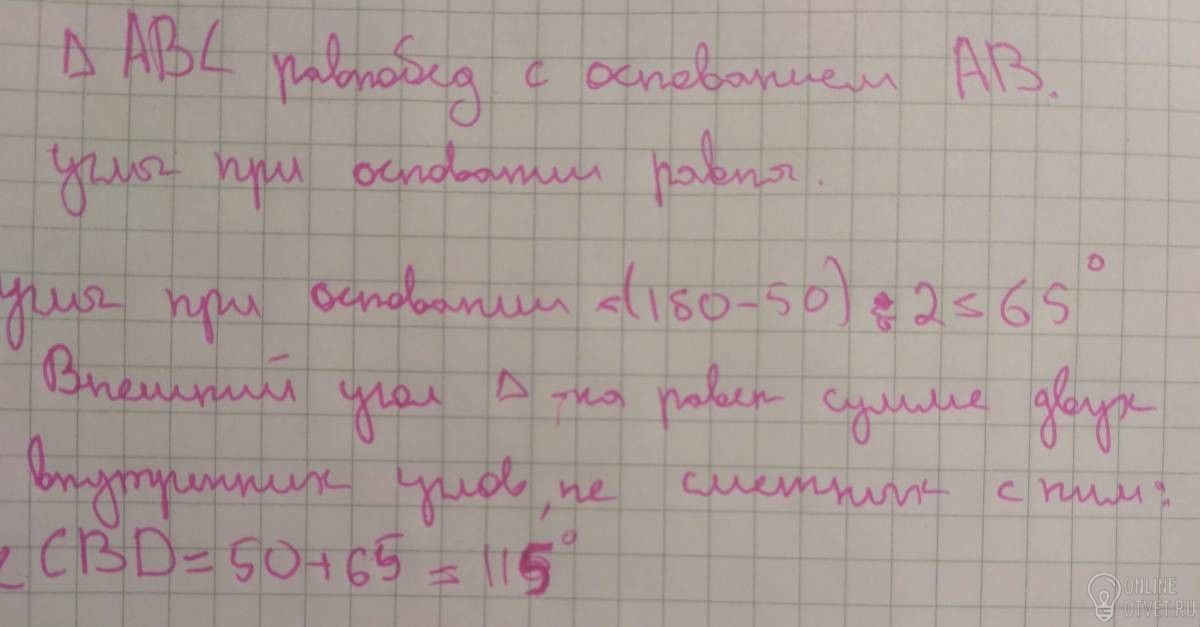 Δ ABC равнобед с основанием AB.
углы при основании равны.
углы при основании =(180-50):2=65°
Внешний угол Δ-ка равен сумме двух
внутренних углов, не смежных с ним:
∠CBD=50+65=115°
ONLINE
OTVET.RU